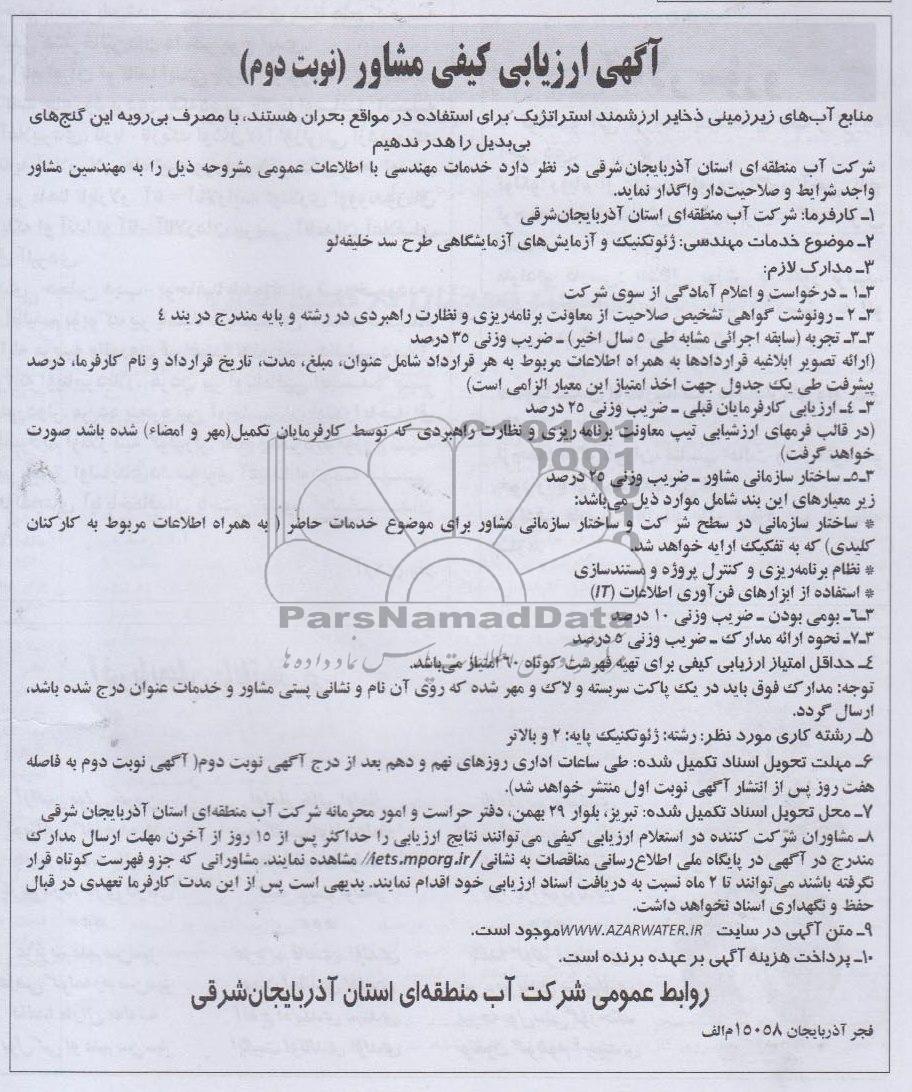 آگهی ارزیابی کیفی مشاور (نوبت دوم)
منابع آب‌های زیرزمینی ذخایر ارزشمند استراتژیک برای استفاده در مواقع بحران هستند، با مصرف بی‌رویه این گنج‌های
بی‌بدیل را هدر ندهیم
شرکت آب منطقه‌ای استان آذربایجان‌شرقی در نظر دارد خدمات مهندسی با اطلاعات عمومی مشروحه ذیل را به مهندسین مشاور
واجد شرایط و صلاحیت‌دار واگذار نماید.
۱ـ کارفرما: شرکت آب منطقه‌ای استان آذربایجان‌شرقی
۲ـ موضوع خدمات مهندسی: ژئوتکنیک و آزمایش‌های آزمایشگاهی طرح سد خلیفه‌لو
۳ـ مدارک لازم:
۳ـ۱ ـ درخواست و اعلام آمادگی از سوی شرکت
۳ـ ۲ ـ رونوشت گواهی تشخیص صلاحیت از معاونت برنامه‌ریزی و نظارت راهبردی در رشته و پایه مندرج در بند ٤
۳ـ۳ـ تجربه (سابقه اجرائی مشابه طی ۵ سال اخیر) ـ ضریب وزنی ۳۵ درصد
(ارائه تصویر ابلاغیه قراردادها به همراه اطلاعات مربوط به هر قرارداد شامل عنوان، مبلغ، مدت، تاریخ قرارداد و نام کارفرما، درصد
پیشرفت طی یک جدول جهت اخذ امتیاز این معیار الزامی است)
۳ـ ٤ـ ارزیابی کارفرمایان قبلی ـ ضریب وزنی ۲۵ درصد
(در قالب فرمهای ارزشیابی تیپ معاونت برنامه‌ریزی و نظارت راهبردی که توسط کارفرمایان تکمیل(مهر و امضاء) شده باشد صورت
خواهد گرفت)
۳ـ۵ـ ساختار سازمانی مشاور ـ ضریب وزنی ۲۵ درصد
زیر معیارهای این بند شامل موارد ذیل می‌باشد:
* ساختار سازمانی در سطح شر کت و ساختار سازمانی مشاور برای موضوع خدمات حاضر ( به همراه اطلاعات مربوط به کارکنان
کلیدی) که به تفکیک ارایه خواهد شد.
* نظام برنامه‌ریزی و کنترل پروژه و مستندسازی
* استفاده از ابزارهای فن‌آوری اطلاعات (IT)
ParsNamadData
۳ـ۶ـ بومی بودن ـ ضریب وزنی ۱۰ درصد
۳ـ۷ـ نحوه ارائه مدارک ـ ضریب وزنی ۵ درصد
٤ـ حداقل امتیاز ارزیابی کیفی برای تهیه فهرست کوتاه ۶۰ امتیاز می‌باشد.
توجه: مدارک فوق باید در یک پاکت سربسته و لاک و مهر شده که روی آن نام و نشانی پستی مشاور و خدمات عنوان درج شده باشد،
ارسال گردد.
۵ـ رشته کاری مورد نظر: رشته: ژئوتکنیک پایه: ۲ و بالاتر
۶ـ مهلت تحویل اسناد تکمیل شده: طی ساعات اداری روزهای نهم و دهم بعد از درج آگهی نوبت دوم( آگهی نوبت دوم به فاصله
هفت روز پس از انتشار آگهی نوبت اول منتشر خواهد شد).
۷ـ محل تحویل اسناد تکمیل شده: تبریز، بلوار ۲۹ بهمن، دفتر حراست و امور محرمانه شرکت آب منطقه‌ای استان آذربایجان شرقی
۸ـ مشاوران شرکت کننده در استعلام ارزیابی کیفی می‌توانند نتایج ارزیابی را حداکثر پس از ۱۵ روز از آخرن مهلت ارسال مدارک
مندرج در آگهی در پایگاه ملی اطلاع‌رسانی مناقصات به نشانی/iets.mporg.ir// مشاهده نمایند. مشاورانی که جزو فهرست کوتاه قرار
نگرفته باشند می‌توانند تا ۲ ماه نسبت به دریافت اسناد ارزیابی خود اقدام نمایند. بدیهی است پس از این مدت کارفرما تعهدی در قبال
حفظ و نگهداری اسناد نخواهد داشت.
۹ـ متن آگهی در سایت WWW.AZARWATER.IR موجود است.
۱۰ـ پرداخت هزینه آگهی بر عهده برنده است.
روابط عمومی شرکت آب منطقه‌ای استان آذربایجان‌شرقی
فجر آذربایجان ۱۵۰۵۸م‌الف